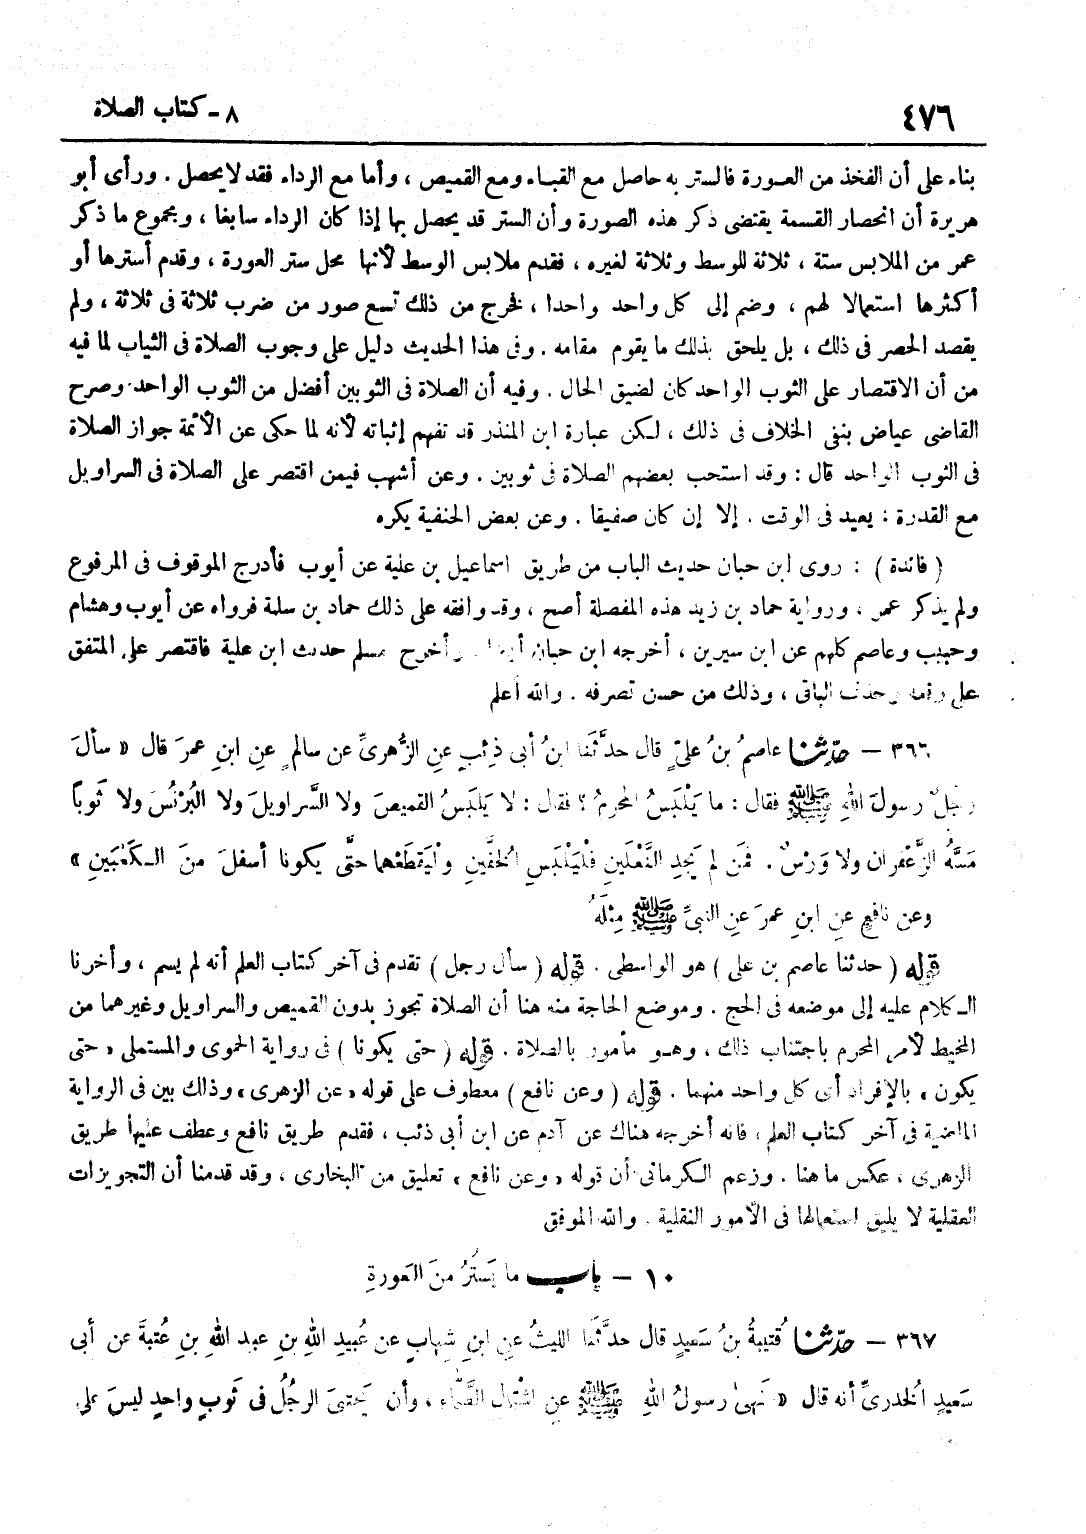 ٤٧٦
٨ - كتاب الصلاة
بناء على أن الفخذ من العورة فالستر به حاصل مع القباء ومع القميص ، وأما مع الرداء فقد لايحصل . ورأى أبو
هريرة أن انحصار القسمة يقتضى ذكر هذه الصورة وأن الستر قد يحصل بها إذا كان الرداء سابغا ، ومجموع ما ذكر
عمر من الملابس ستة ، ثلاثة للوسط وثلاثة لغيره ، فقدم ملابس الوسط لأنها محل ستر العورة ، وقدم أسترها أو
أكثرها استعمالا لهم ، وضم إلى كل واحد واحدا ، فخرج من ذلك تسع صور من ضرب ثلاثة فى ثلاثة ، ولم
يقصد الحصر فى ذلك ، بل يلحق بذلك ما يقوم مقامه . وفى هذا الحديث دليل على وجوب الصلاة فى الثياب لما فيه
من أن الاقتصار على الثوب الواحد كان لضيق الحال . وفيه أن الصلاة فى الثوبين أفضل من الثوب الواحد وصرح
القاضى عياض بنفى الخلاف فى ذلك ، لكن عبارة ابن المنذر قد تفهم إثباته لأنه لما حكى عن الأئمة جواز الصلاة
فى الثوب الواحد قال : وقد استحب بعضهم الصلاة فى ثوبين . وعن أشهب فيمن اقتصر على الصلاة فى السراويل
مع القدرة : يعيد فى الوقت . إلا إن كان صفيقا . وعن بعض الحنفية يكره
( فائدة ) : روى ابن حبان حديث الباب من طريق اسماعيل بن علية عن أيوب فأدرج الموقوف فى المرفوع
ولم يذكر عمر ، ورواية حماد بن زيد هذه المفصلة أصح ، وقد وافقه على ذلك حماد بن سلمة فرواه عن أيوب وهشام
وحبيب وعاصم كلهم عن ابن سيرين ، أخرجه ابن حبان أيضا . وأخرج مسلم حديث ابن علية فاقتصر على المتفق
على رفعه وحذف الباقى ، وذلك من حسن تصرفه . والله أعلم
٣٦٦ - حدّثنا عاصمُ بنُ علىٍّ قال حدَّثَنا ابنُ أبى ذِئبٍ عنِ الزُّهرىِّ عن سالمٍ عنِ ابنِ عمرَ قال « سألَ
رجُلٌ رسولَ اللهِ ﷺ فقال : ما يَلْبَسُ المحرِمُ ؟ فقال : لا يَلبَسُ القميصَ ولا السَّراويلَ ولا البُرْنُسَ ولا ثَوبًا
مَسَّهُ الزَّعْفَران ولا وَرْسٌ . فمَن لم يَجِدِ النَّعْلَينِ فليَلْبَسِ الخُفَّينِ ولْيَقطَعْهما حتَّى يكونا أسفلَ منَ الكَعْبَينِ »
وعن نافعٍ عنِ ابنِ عمرَ عنِ النبىِّ ﷺ مِثلَهُ
قوله ( حدثنا عاصم بن على ) هو الواسطى . قوله ( سأل رجل ) تقدم فى آخر كتاب العلم أنه لم يسم ، وأخرنا
الكلام عليه إلى موضعه فى الحج . وموضع الحاجة منه هنا أن الصلاة تجوز بدون القميص والسراويل وغيرهما من
المخيط لأمر المحرم باجتناب ذلك ، وهو مأمور بالصلاة . قوله ( حتى يكونا ) فى رواية الحموى والمستملى « حتى
يكون » بالإفراد أى كل واحد منهما . قوله ( وعن نافع ) معطوف على قوله « عن الزهرى » وذلك بين فى الرواية
الماضية فى آخر كتاب العلم ، فانه أخرجه هناك عن آدم عن ابن أبى ذئب ، فقدم طريق نافع وعطف عليها طريق
الزهرى ، عكس ما هنا . وزعم الكرمانى أن قوله « وعن نافع » تعليق من البخارى ، وقد قدمنا أن التجويزات
العقلية لا يليق استعمالها فى الأمور النقلية . والله الموفق
١٠ - باب ما يَستُرُ منَ العَورةِ
٣٦٧ - حدّثنا قُتيبةُ بنُ سَعيدٍ قال حدَّثَنا الليثُ عنِ ابنِ شِهابٍ عن عُبيدِ اللهِ بنِ عبد اللهِ بنِ عُتبةَ عن أبى
سَعيدٍ الخدرىِّ أنه قال « نَهىٰ رسولُ اللهِ ﷺ عنِ اشْتِمالِ الصَّمّاء ، وأن يَحتبِىَ الرجُلُ فى ثَوبٍ واحدٍ ليسَ على